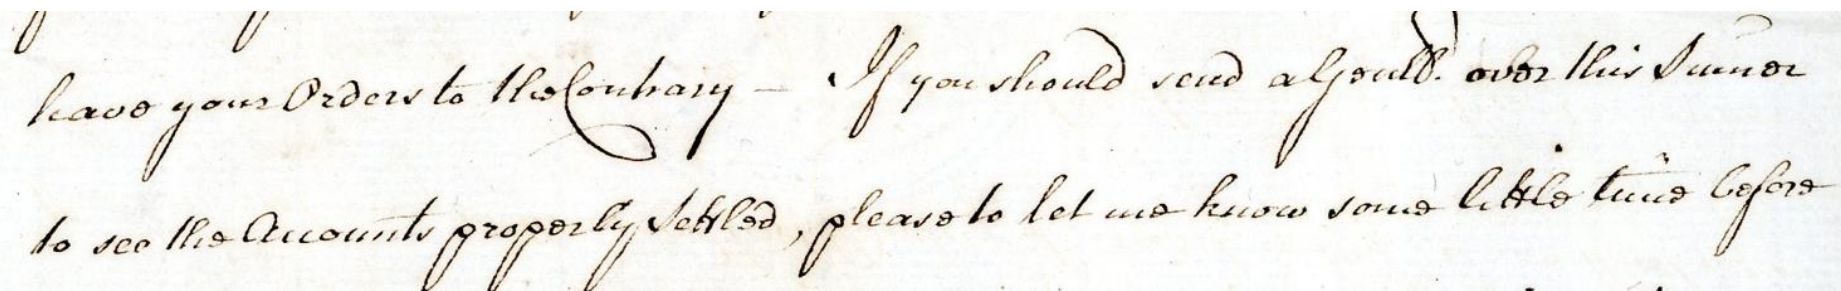 have your Orders to the Contrary — If you should send a Gentl. over this Summer
to see the Accounts properly Settled, please to let me know some little time before